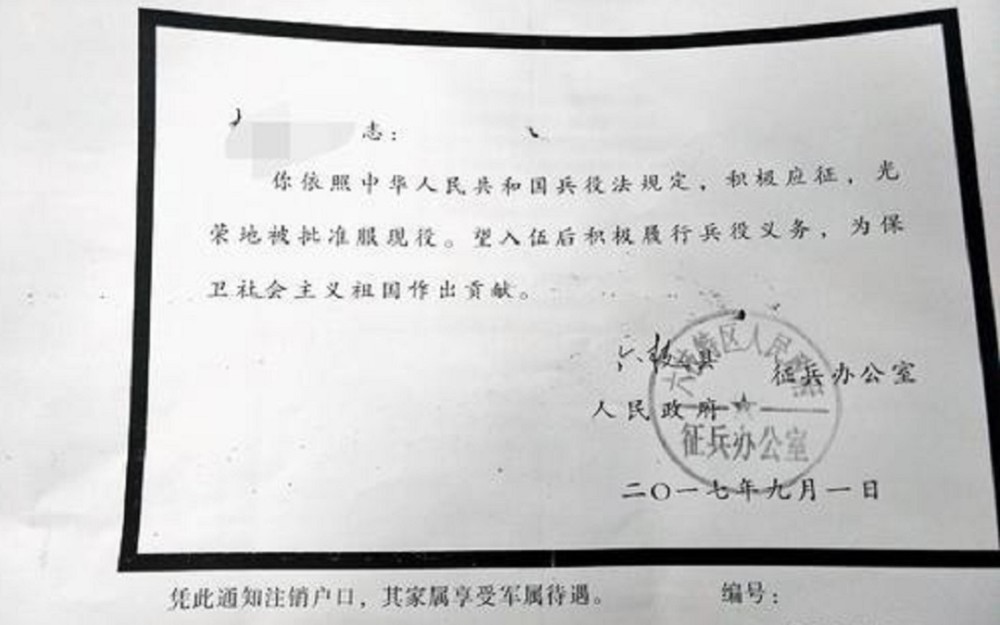 志：
你依照中华人民共和国兵役法规定，积极应征，光
荣地被批准服现役。望入伍后积极履行兵役义务，为保
卫社会主义祖国作出贡献。
六枝 征兵办公室
人民政府
六枝特区人民政府
征兵办公室
二〇一七年九月一日
凭此通知注销户口，其家属享受军属待遇。 编号：